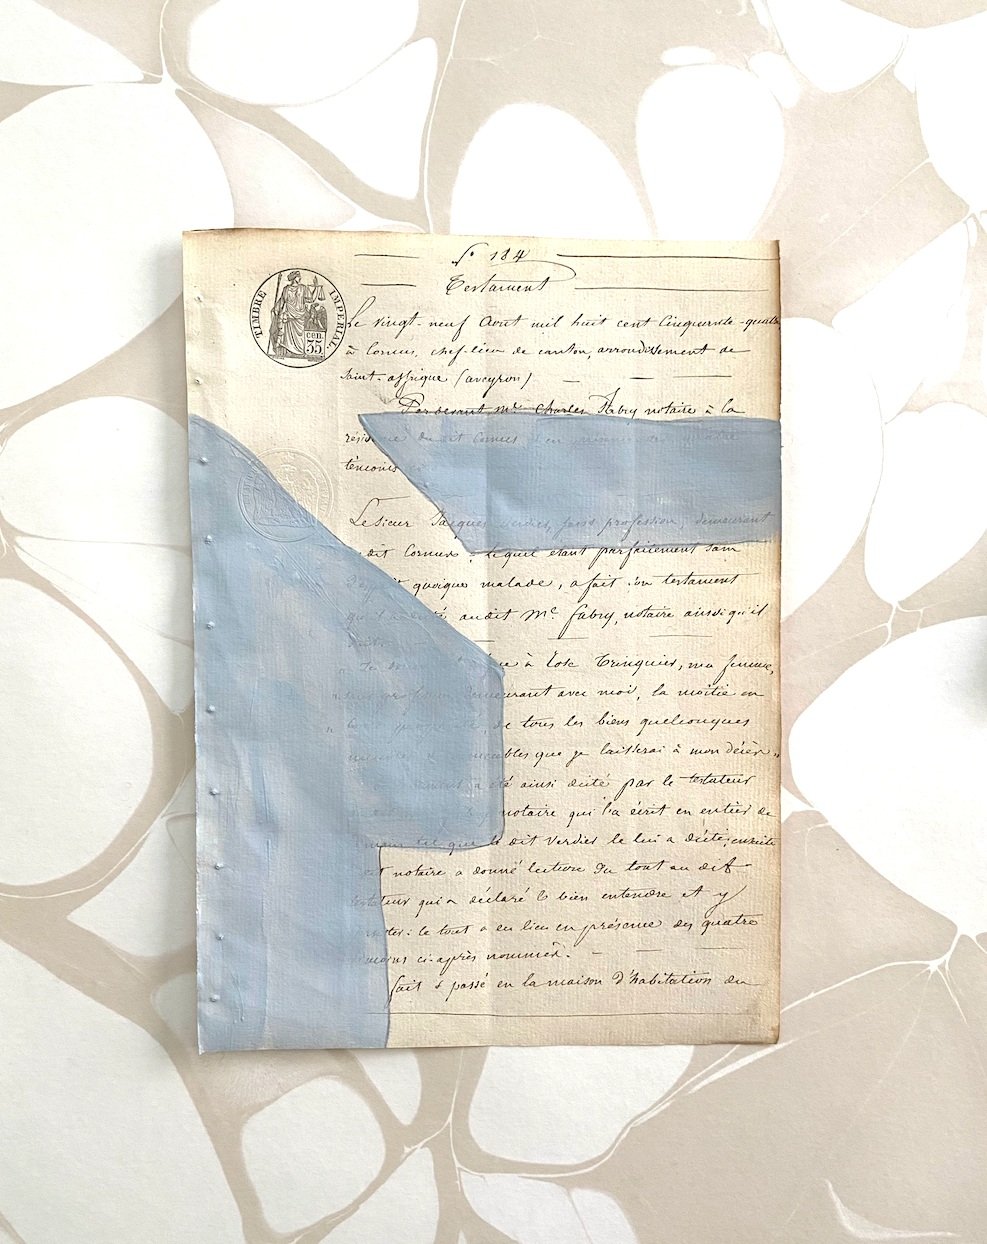 TIMBRE IMPERIAL.
cen. 35
N° 184
Testament
Le vingt-neuf Aout mil huit cent Cinquante-quatre
à Cornus, chef-lieu de canton, arrondissement de
Saint-affrique (aveyron)
Par devant Me Charles Fabry notaire à la
résidence du dit Cornus
témoins
Le Sieur Jacques Verdier, sans profession, demeurant
dit Cornus, lequel étant parfaitement sain
quoique malade, a fait son testament
audit Me fabry, notaire ainsi qu'il
à Rose Trinquier, ma femme,
demeurant avec moi, la moitié en
de tous les biens quelconques
meubles que je laisserai à mon décès
a été ainsi dicté par le testateur
notaire qui l'a écrit en entier de
main tel que le dit Verdier le lui a dicté, ensuite
dit notaire a donné lecture du tout au dit
testateur qui a déclaré le bien entendre et y
le tout a eu lieu en présence des quatre
témoins ci-après nommés.
fait & passé en la maison d'habitation du